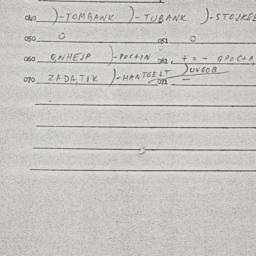 040 )-TOMBANK )-TUBANK )-STOJKSE
050 0 051 0
060 )-POCTIN 061 + = -
070 ZADATIK )-HANTGELT 071 -